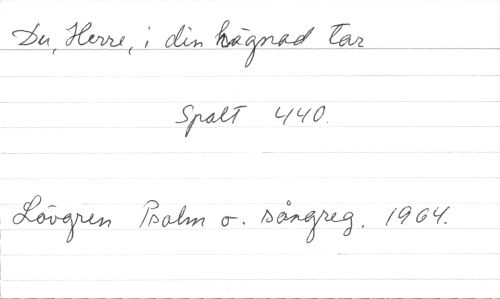 Du, Herre, i din hägnad tar
Spalt 440.
Lövgren Psalm o. sångreg. 1964.